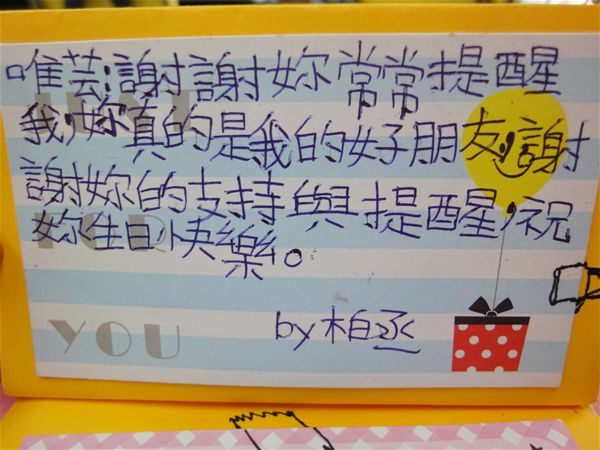 唯芸:謝謝妳常常提醒
我,妳真的是我的好朋友,謝
謝妳的支持與提醒,祝
妳生日快樂。
by柏丞
FOR
YOU